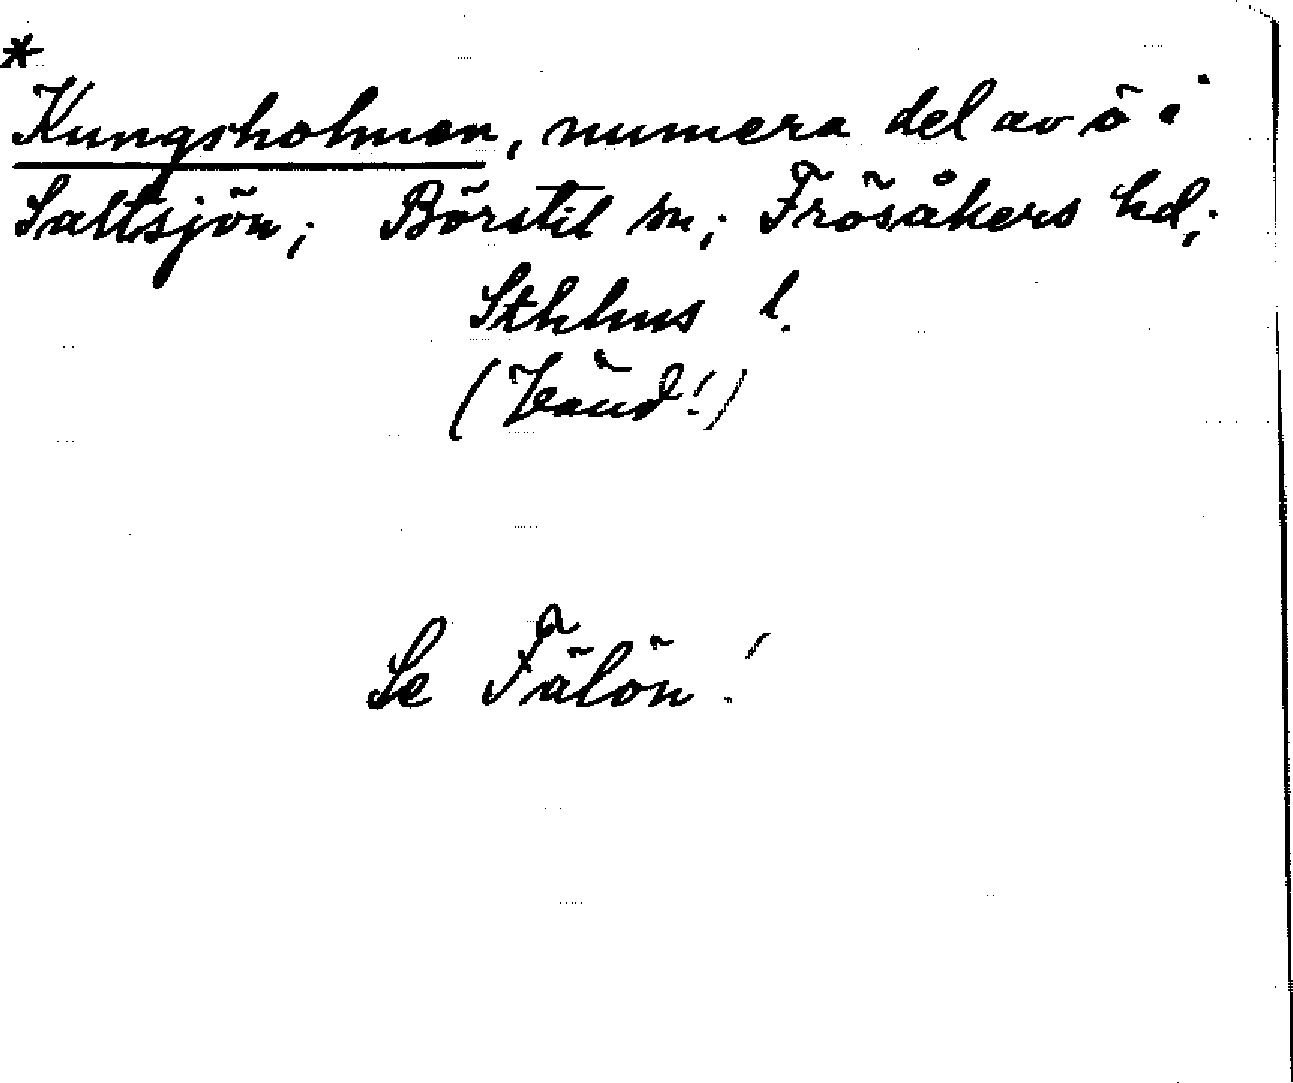 *
Kungsholmen, numera del av ö i
Saltsjön; Börstil sn; Frösåkers hd;
Sthlms l.
Se Fälön!